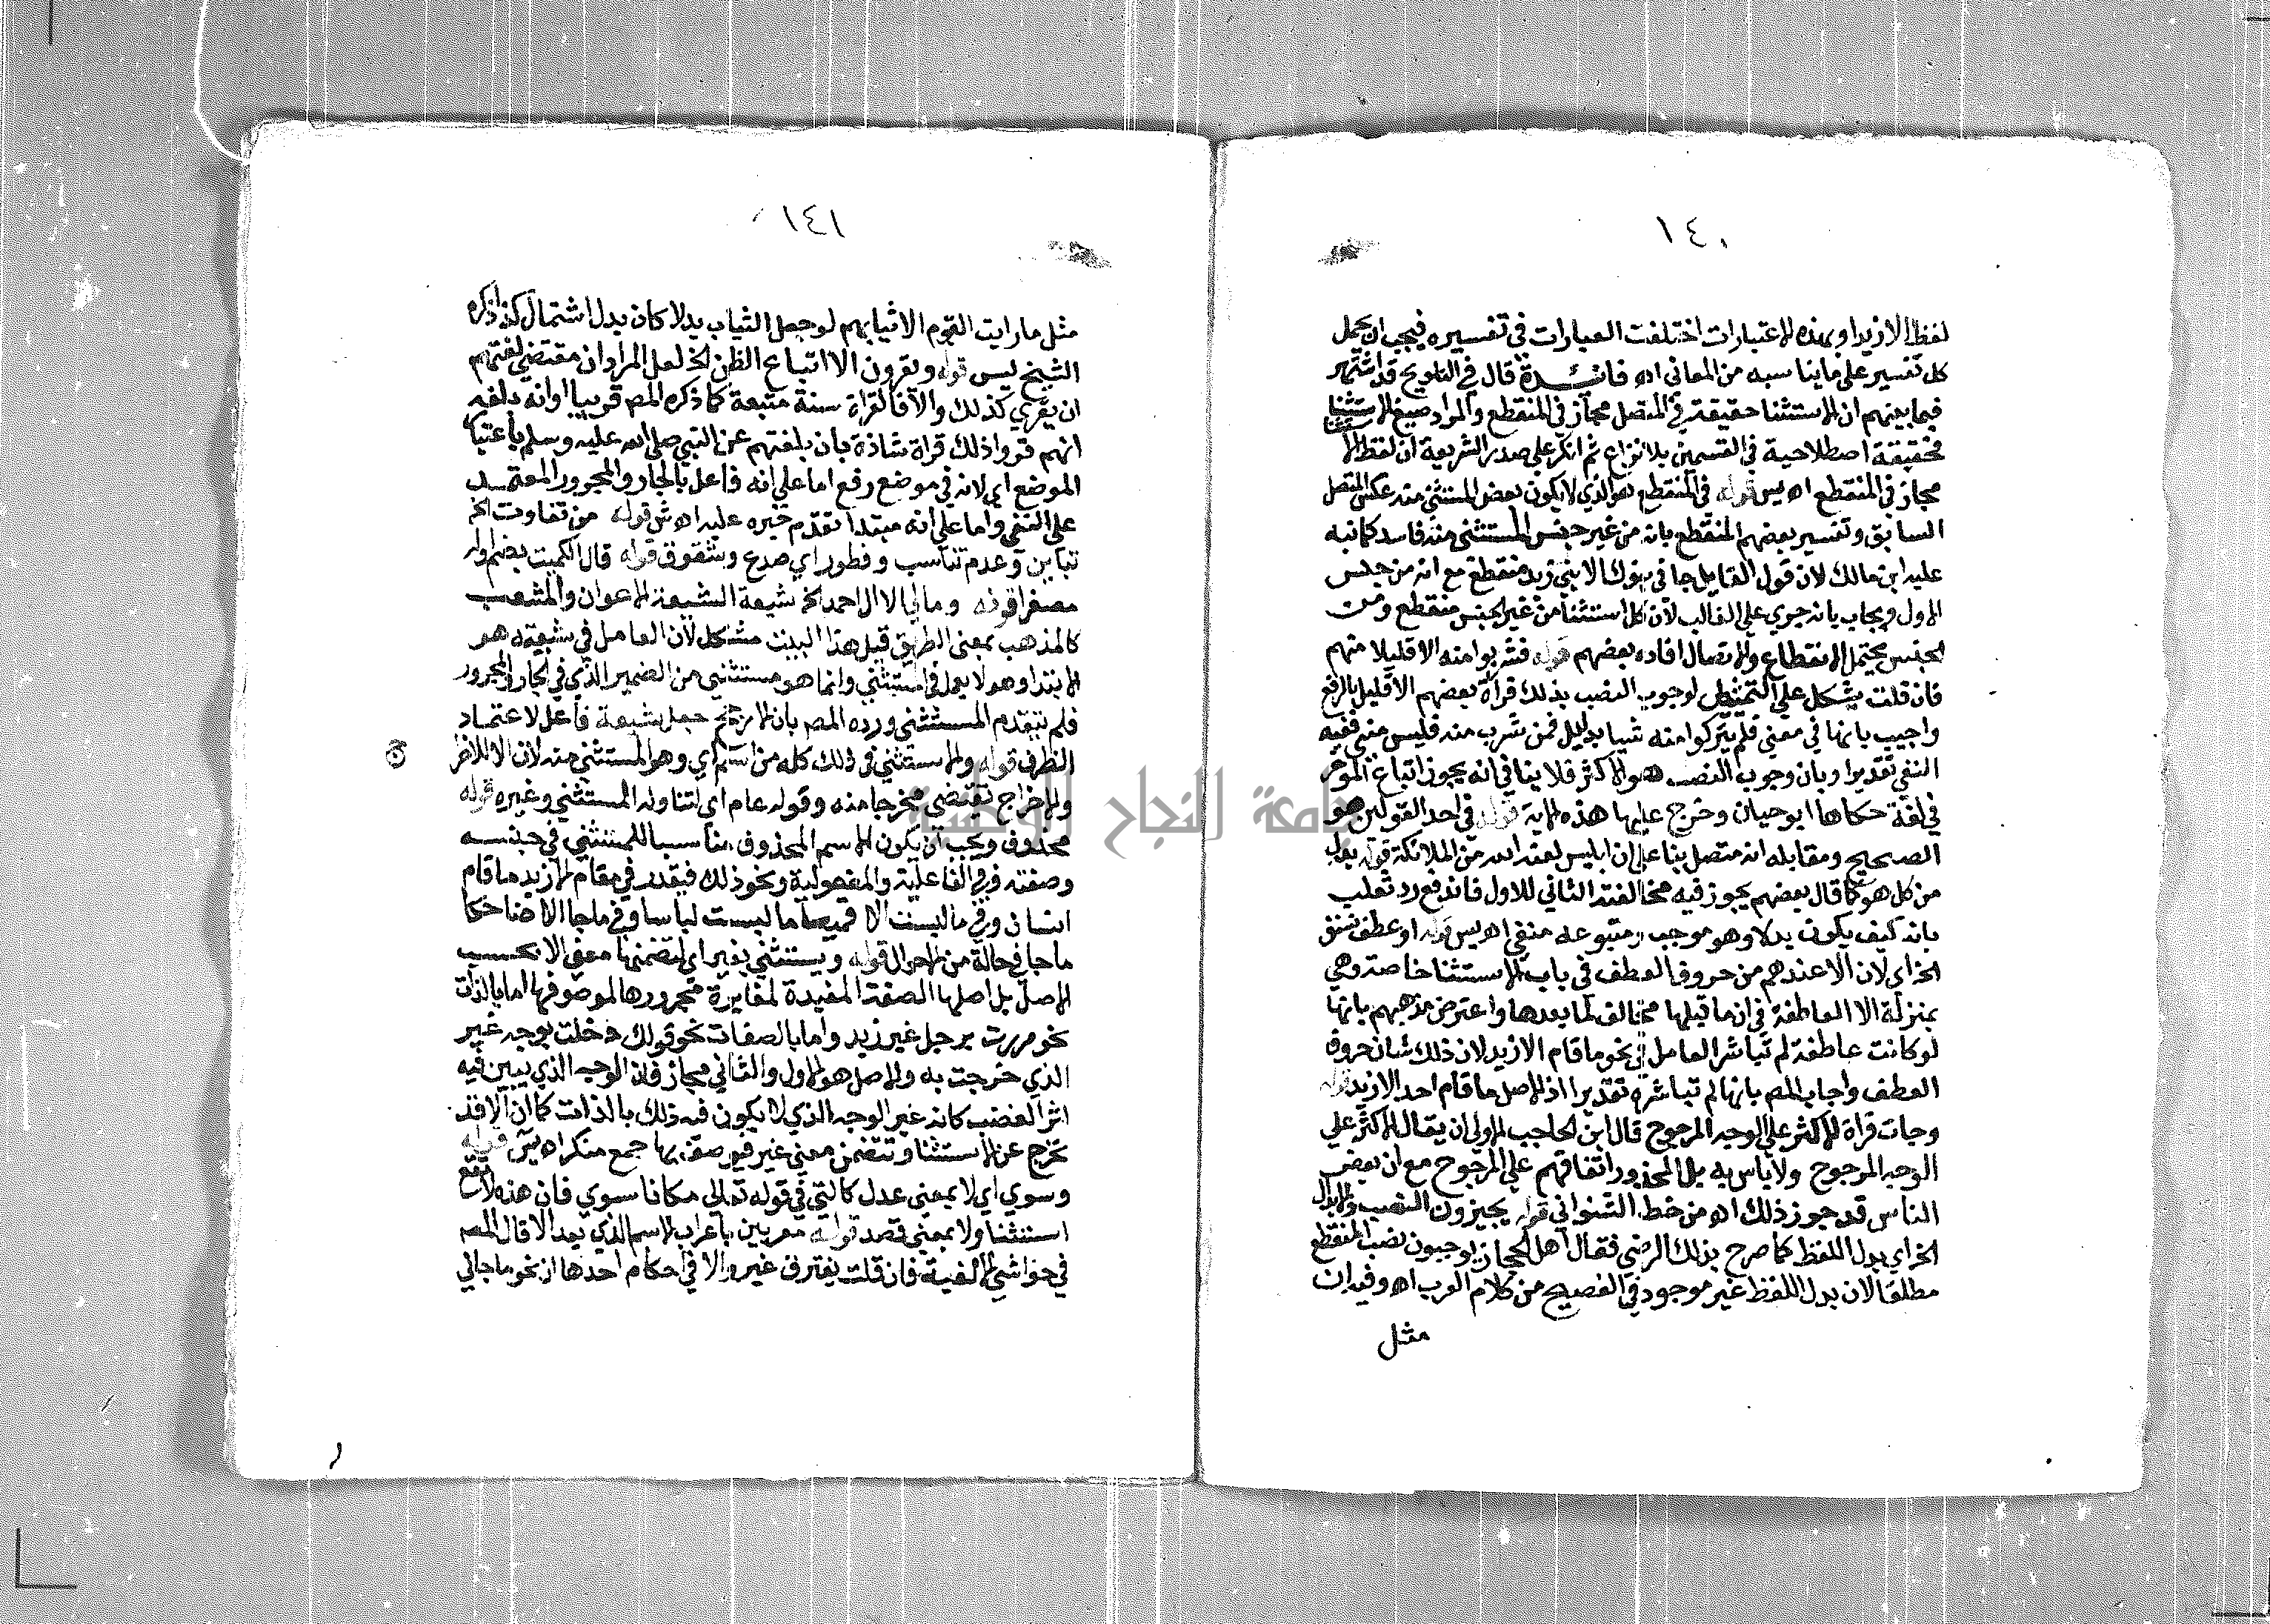 ١٤٠
لفظ الا زيدا وبهذه الاعتبارات اختلفت العبارات في تفسيره فيجب ان يحمل
كل تفسير على ما يناسبه من المعاني اه فائدة قال في التلويح قد اشتهر
فيما بينهم ان الاستثنا حقيقة في المتصل مجاز في المنقطع والمراد صيغ الاستثنا
فحقيقة اصطلاحية في القسمين بلا نزاع ثم انكر على صدر الشريعة ان لفظ الا
مجاز في المنقطع اه يس قوله في المنقطع وهو الذي لا يكون بعض المستثنى منه عكس المتصل
السابق وتفسير بعضهم المنقطع بانه من غير جنس المستثنى منه فاسد كما نبه
عليه ابن مالك لان قول القايل جا في بنوك الا بني زيد منقطع مع انه من جنس
الاول ويجاب بانه جري على الغالب لان كل استثنا من غير الجنس منقطع ومن
الجنس يحتمل الانقطاع والاتصال افاده بعضهم قوله فشربوا منه الا قليلا منهم
فان قلت يشكل على التمثيل لوجوب النصب بذلك قراة بعضهم الا قليل بالرفع
واجيب بانها في معنى فلم يتركوا منه شيا بدليل فمن شرب منه فليس مني ففيه
النفي تقديرا وبان وجوب النصب هو الاكثر فلا ينافي انه يجوز اتباع الموخر
في لغة حكاها ابو حيان وخرج عليها هذه الاية قوله في احد القولين هو
الصحيح ومقابله انه متصل بنا على ان ابليس لعنه الله من الملائكة قوله بدل
من كل هو كما قال بعضهم يجوز فيه مخالفة الثاني للاول فاندفع رد ثعلب
بانه كيف يكون بدلا وهو موجب ومتبوعه منفي اه يس قوله او عطف نسق
الخ اي لان الا عندهم من حروف العطف في باب الاستثنا خاصة وهي
بمنزلة لا العاطفة في ان ما قبلها مخالف لما بعدها واعترض مذهبهم بانها
لو كانت عاطفة لم تباشر العامل في نحو ما قام الا زيد لان ذلك شان حروف
العطف واجاب المص بانها لم تباشره تقديرا اذ الاصل ما قام احد الا زيد قوله
وجات قراة الاكثر على الوجه المرجوح قال ابن الحاجب الاولى ان يقال الاكثر على
الوجه المرجوح ولا باس به بل المحذور اتفاقهم على المرجوح مع ان بعض
الناس قد جوز ذلك اه من خط الشنواني قوله يجيزون النصب والابدال
الخ اي بدل اللفظ كما صرح بذلك الرضي فقال اهل الحجاز يوجبون نصب المنقطع
مطلقا لان بدل اللفظ غير موجود في الفصيح من كلام العرب اه وفيه ان
مثل
١٤١
مثل ما رايت القوم الا ثيابهم لو جعل الثياب بدلا كان بدل اشتمال كذا ذكره
الشيخ يس قوله ويقرون الا اتباع الظن الخ لعل المراد ان مقتضى لغتهم
ان يقرى كذلك والا فالقراة سنة متبعة كما ذكره المص قريبا او انه بلغه
انهم قروا ذلك قراة شاذة بان بلغتهم عن النبي صلى الله عليه وسلم باعتبار
الموضع اي لانه في موضع رفع اما على انه فاعل بالجار والمجرور المعتمد
على النفي واما على انه مبتدا تقدم خبره عليه اه ش قوله من تفاوت الخ
تباين وعدم تناسب وفطور اي صدع وشقوق قوله قال الكميت بضم اوله
مصغرا قوله ومالي الا ال احمد الخ شيعة الشيعة الاعوان والمشعب
كالمذهب بمعنى الطريق قيل هذا البيت مشكل لان العامل في شيعة هو
الابتدا وهو لا يعمل في المستثنى وانما هو مستثنى من الضمير الذي في الجار والمجرور
فلم يتقدم المستثنى ورده المص بان الارجح جعل شيعة فاعل لاعتماد
الظرف قوله والمستثنى في ذلك كله من اسم اي وهو المستثنى منه لان الا للاخراج
والاخراج يقتضي مخرجا منه وقوله عام اي لتناوله المستثنى وغيره قوله
محذوف ويجب ان يكون الاسم المحذوف مناسبا للمستثنى في جنسه
وصفته في الفاعلية والمفعولية ونحو ذلك فيقدر في ما قام الا زيد ما قام
انسان وفي ما لبست الا قميصا ما لبست لباسا وفي ما جا الا ضاحكا
ما جا في حالة من الاحوال قوله ويستثنى بغير اي لتضمنها معنى الا بحسب
الاصل بل اصلها الصفة المفيدة لمغايرة مجرورها لموصوفها اما بالذات
نحو مررت برجل غير زيد واما بالصفات نحو قولك دخلت بوجه غير
الذي خرجت به والاصل هو الاول والثاني مجاز فان الوجه الذي يبين فيه
اثر الغضب كانه غير الوجه الذي لا يكون فيه ذلك بالذات كما ان الا قد
تخرج عن الاستثنا وتتضمن معنى غير فيوصف بها جمع منكر اه يس قوله
وسوي اي لا بمعنى عدل كالتي في قوله تعالى مكانا سوي فان هذه لا تقع
استثنا ولا بمعنى قصد قوله معربين باعراب الاسم الذي بعد الا قال المص
في حواشي الالفية فان قلت يفترق غير والا في احكام احدها ان نحو ما جاني